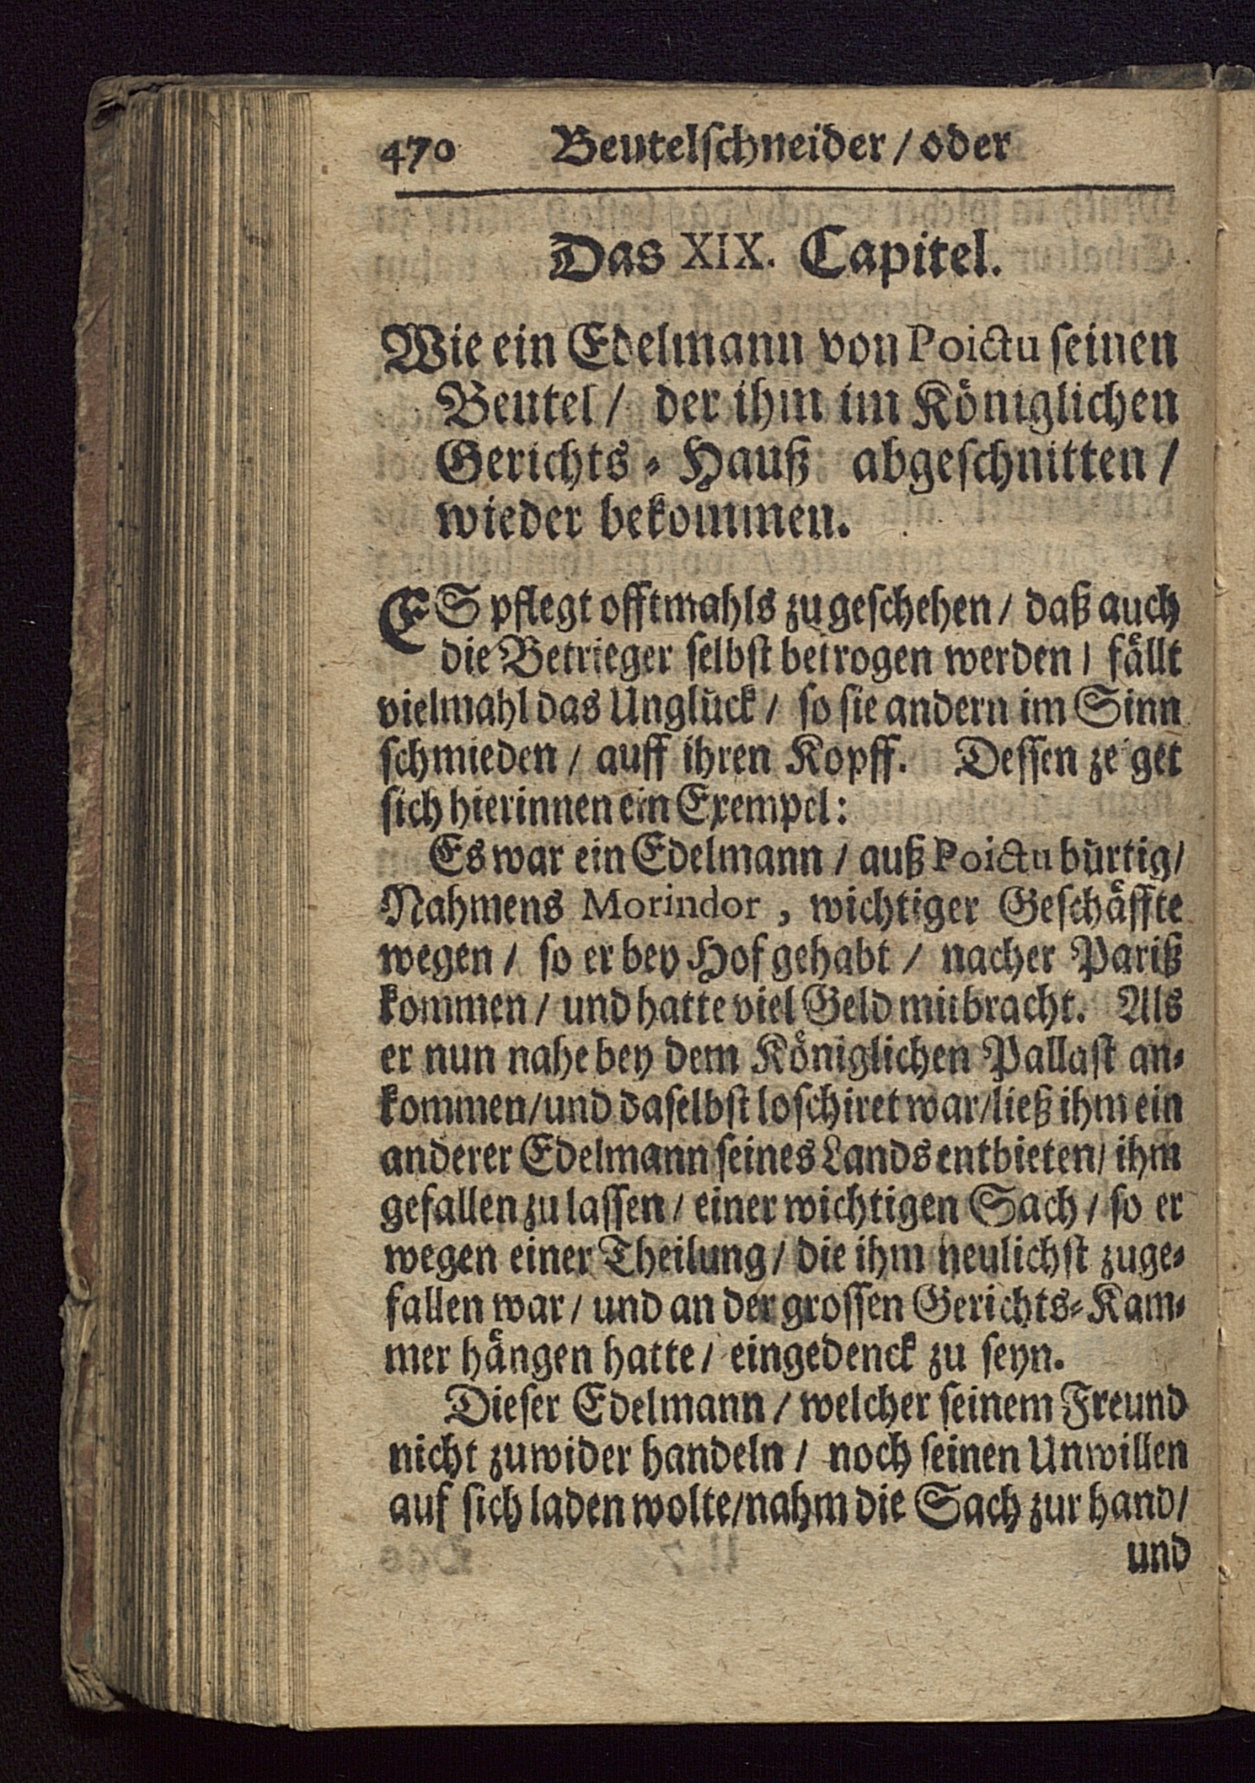 470 Beutelschneider / oder
Das XIX. Capitel.
Wie ein Edelmann von Poictu seinen
Beutel / der ihm im Königlichen
Gerichts-Hauß abgeschnitten /
wieder bekommen.
ES pflegt offtmahls zu geschehen / daß auch
die Betrieger selbst betrogen werden / fällt
vielmahl das Unglück / so sie andern im Sinn
schmieden / auff ihren Kopff. Dessen ze get
sich hierinnen ein Exempel:
Es war ein Edelmann / auß Poictu bürtig /
Nahmens Morindor, wichtiger Geschäffte
wegen / so er bey Hof gehabt / nacher Pariß
kommen / und hatte viel Geld mitbracht. Als
er nun nahe bey dem Königlichen Pallast an-
kommen / und daselbst loschiret war / ließ ihm ein
anderer Edelmann seines Lands entbieten / ihm
gefallen zu lassen / einer wichtigen Sach / so er
wegen einer Theilung / die ihm neulichst zuge-
fallen war / und an der grossen Gerichts-Kam-
mer hängen hatte / eingedenck zu seyn.
Dieser Edelmann / welcher seinem Freund
nicht zuwider handeln / noch seinen Unwillen
auf sich laden wolte / nahm die Sach zur hand /
und